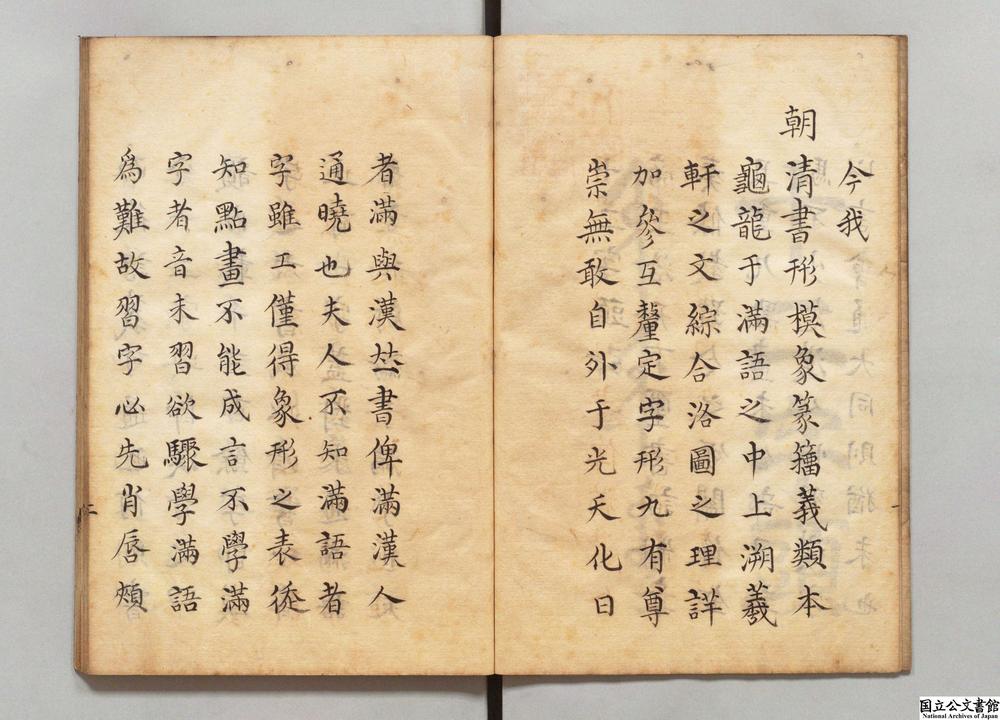 今我
朝清書形模象篆籒義類本
龜龍于滿語之中上溯羲
軒之文綜合洛圖之理詳
加參互釐定字形九有尊
崇無敢自外于光天化日
者滿與漢竝書俾滿漢人
通曉也夫人不知滿語者
字雖工僅得象形之表徒
知點畫不能成言不學滿
字者音未習欲驟學滿語
為難故習字必先肖唇頰
一
二
国立公文書館
National Archives of Japan